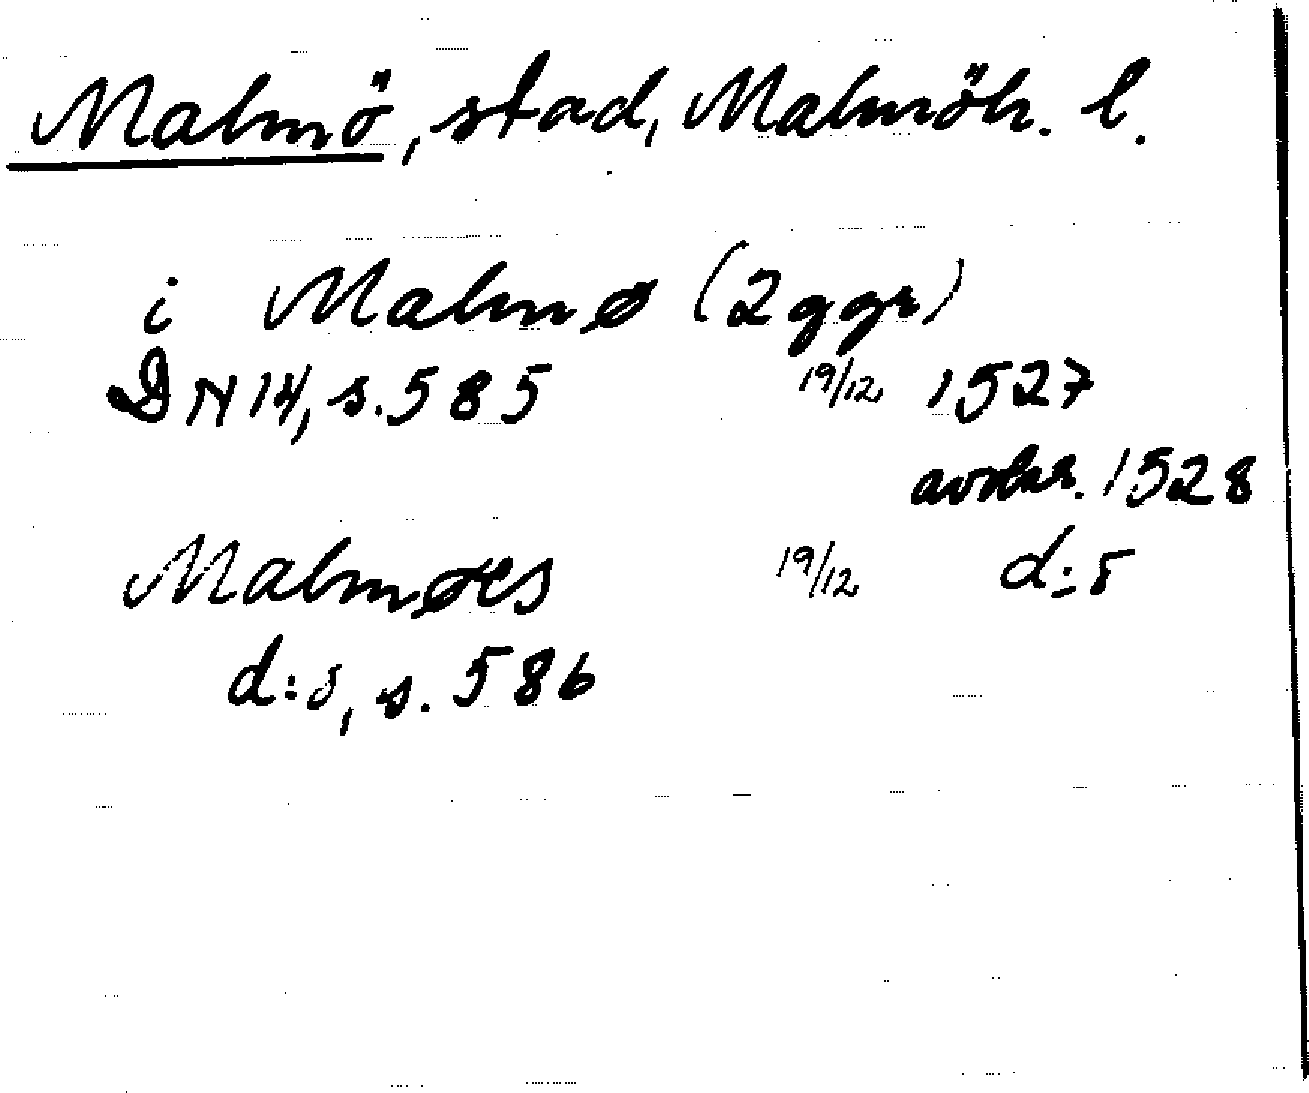 Malmö, stad, Malmöh. l.
i Malmø (2 ggr)
DN 14, s. 585 19/12 1527
avskr. 1528
Malmøes 19/12 d:o
d:o, s. 586